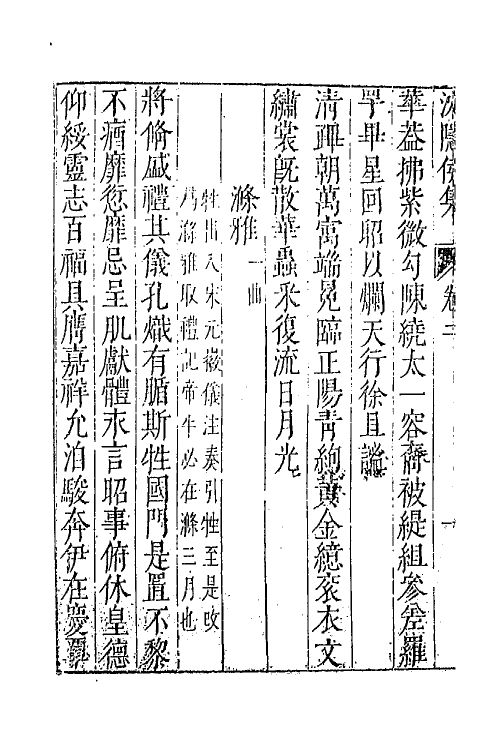 沈隱侯集 卷二
華葢拂紫微勾陳繞太一容裔被緹組參差羅
罕畢星回昭以爛天行徐且謐
清蹕朝萬㝢端冕臨正陽青絇黄金繶衮衣文
繡裳旣散華蟲采復流日月光
滌雅一曲
牲出入宋元徽儀注奏引牲至是改
爲滌雅取禮記帝牛必在滌三月也
將脩盛禮其儀孔熾有腯斯牲國門是置不黎
不瘯靡愆靡忌呈肌獻體永言昭事俯休皇德
仰綏靈志百福具膺嘉祥允洎駿奔伊在慶覃